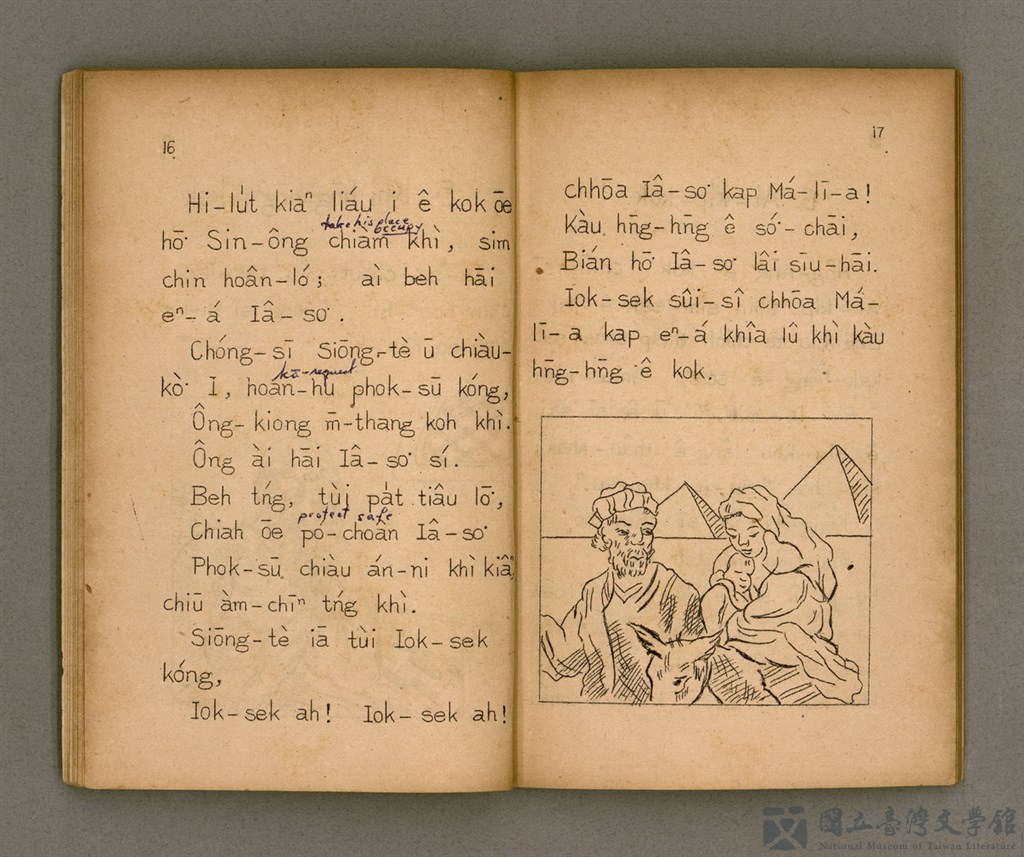 16
Hi-lu̍t kiaⁿ liáu i ê kok ōe
take his place
occupy
hō͘ Sin-ông chiàm khì, sim
chin hoân-ló; ài beh hāi
eⁿ-á Iâ-so͘.
Chóng-sī Siōng-tè ū chiàu-
kā-request
kò͘ I, hoan-hù phok-sū kóng,
Ông-kiong m̄-thang koh khì.
Ông ài hāi Iâ-so͘ sí.
Beh tńg, tùi pa̍t tiâu lō͘,
protect safe
Chiah ōe pó-choân Iâ-so͘
Phok-sū chiàu án-ni khì kiâⁿ
chiū àm-chīⁿ tńg khì.
Siōng-tè iā tùi Iok-sek
kóng,
Iok-sek ah! Iok-sek ah!
17
chhōa Iâ-so͘ kap Má-lī-a!
Kàu hn̄g-hn̄g ê só͘-chāi,
Bián hō͘ Iâ-so͘ lâi sīu-hāi.
Iok-sek sûi-sî chhōa Má-
lī-a kap eⁿ-á khîa lû khì kàu
hn̄g-hn̄g ê kok.
國立臺灣文學館
National Museum of Taiwan Literature